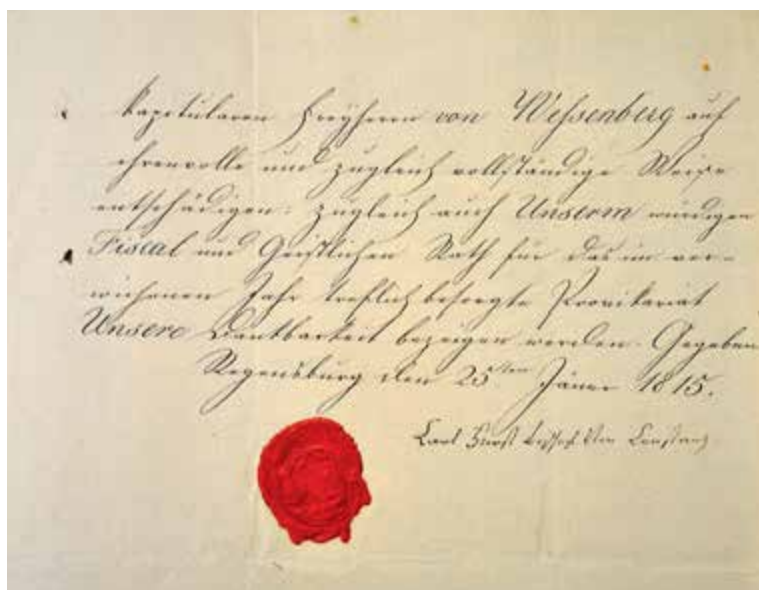 Kapitularen Freyherrn von Wessenberg auf
ehrenvolle und zugleich vollständige Weise
entschädigen: zugleich auch Unserm würdigen
Fiscal und Geistlichen Rath für das im ver-
wichenen Jahr treflich besorgte Provikariat
Unsere Dankbarkeit bezeigen werden. Gegeben
Regensburg den 25sten Jäner 1815.
Carl Fürst Bischof von Constanz